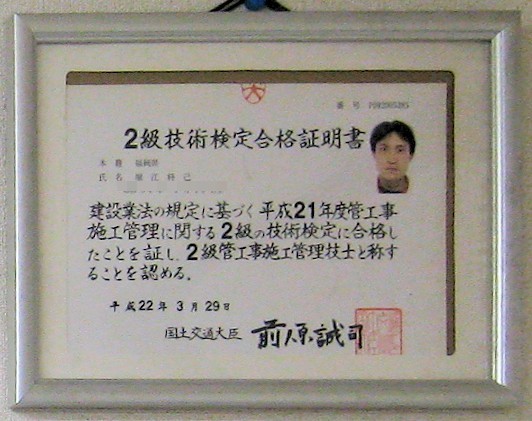 番号
2級技術検定合格証明書
本籍 福岡県
氏名 堀江
建設業法の規定に基づく平成21年度管工事
施工管理に関する2級の技術検定に合格し
たことを証し、2級管工事施工管理技士と称す
ることを認める。
平成22年3月29日
国土交通大臣 前原誠司